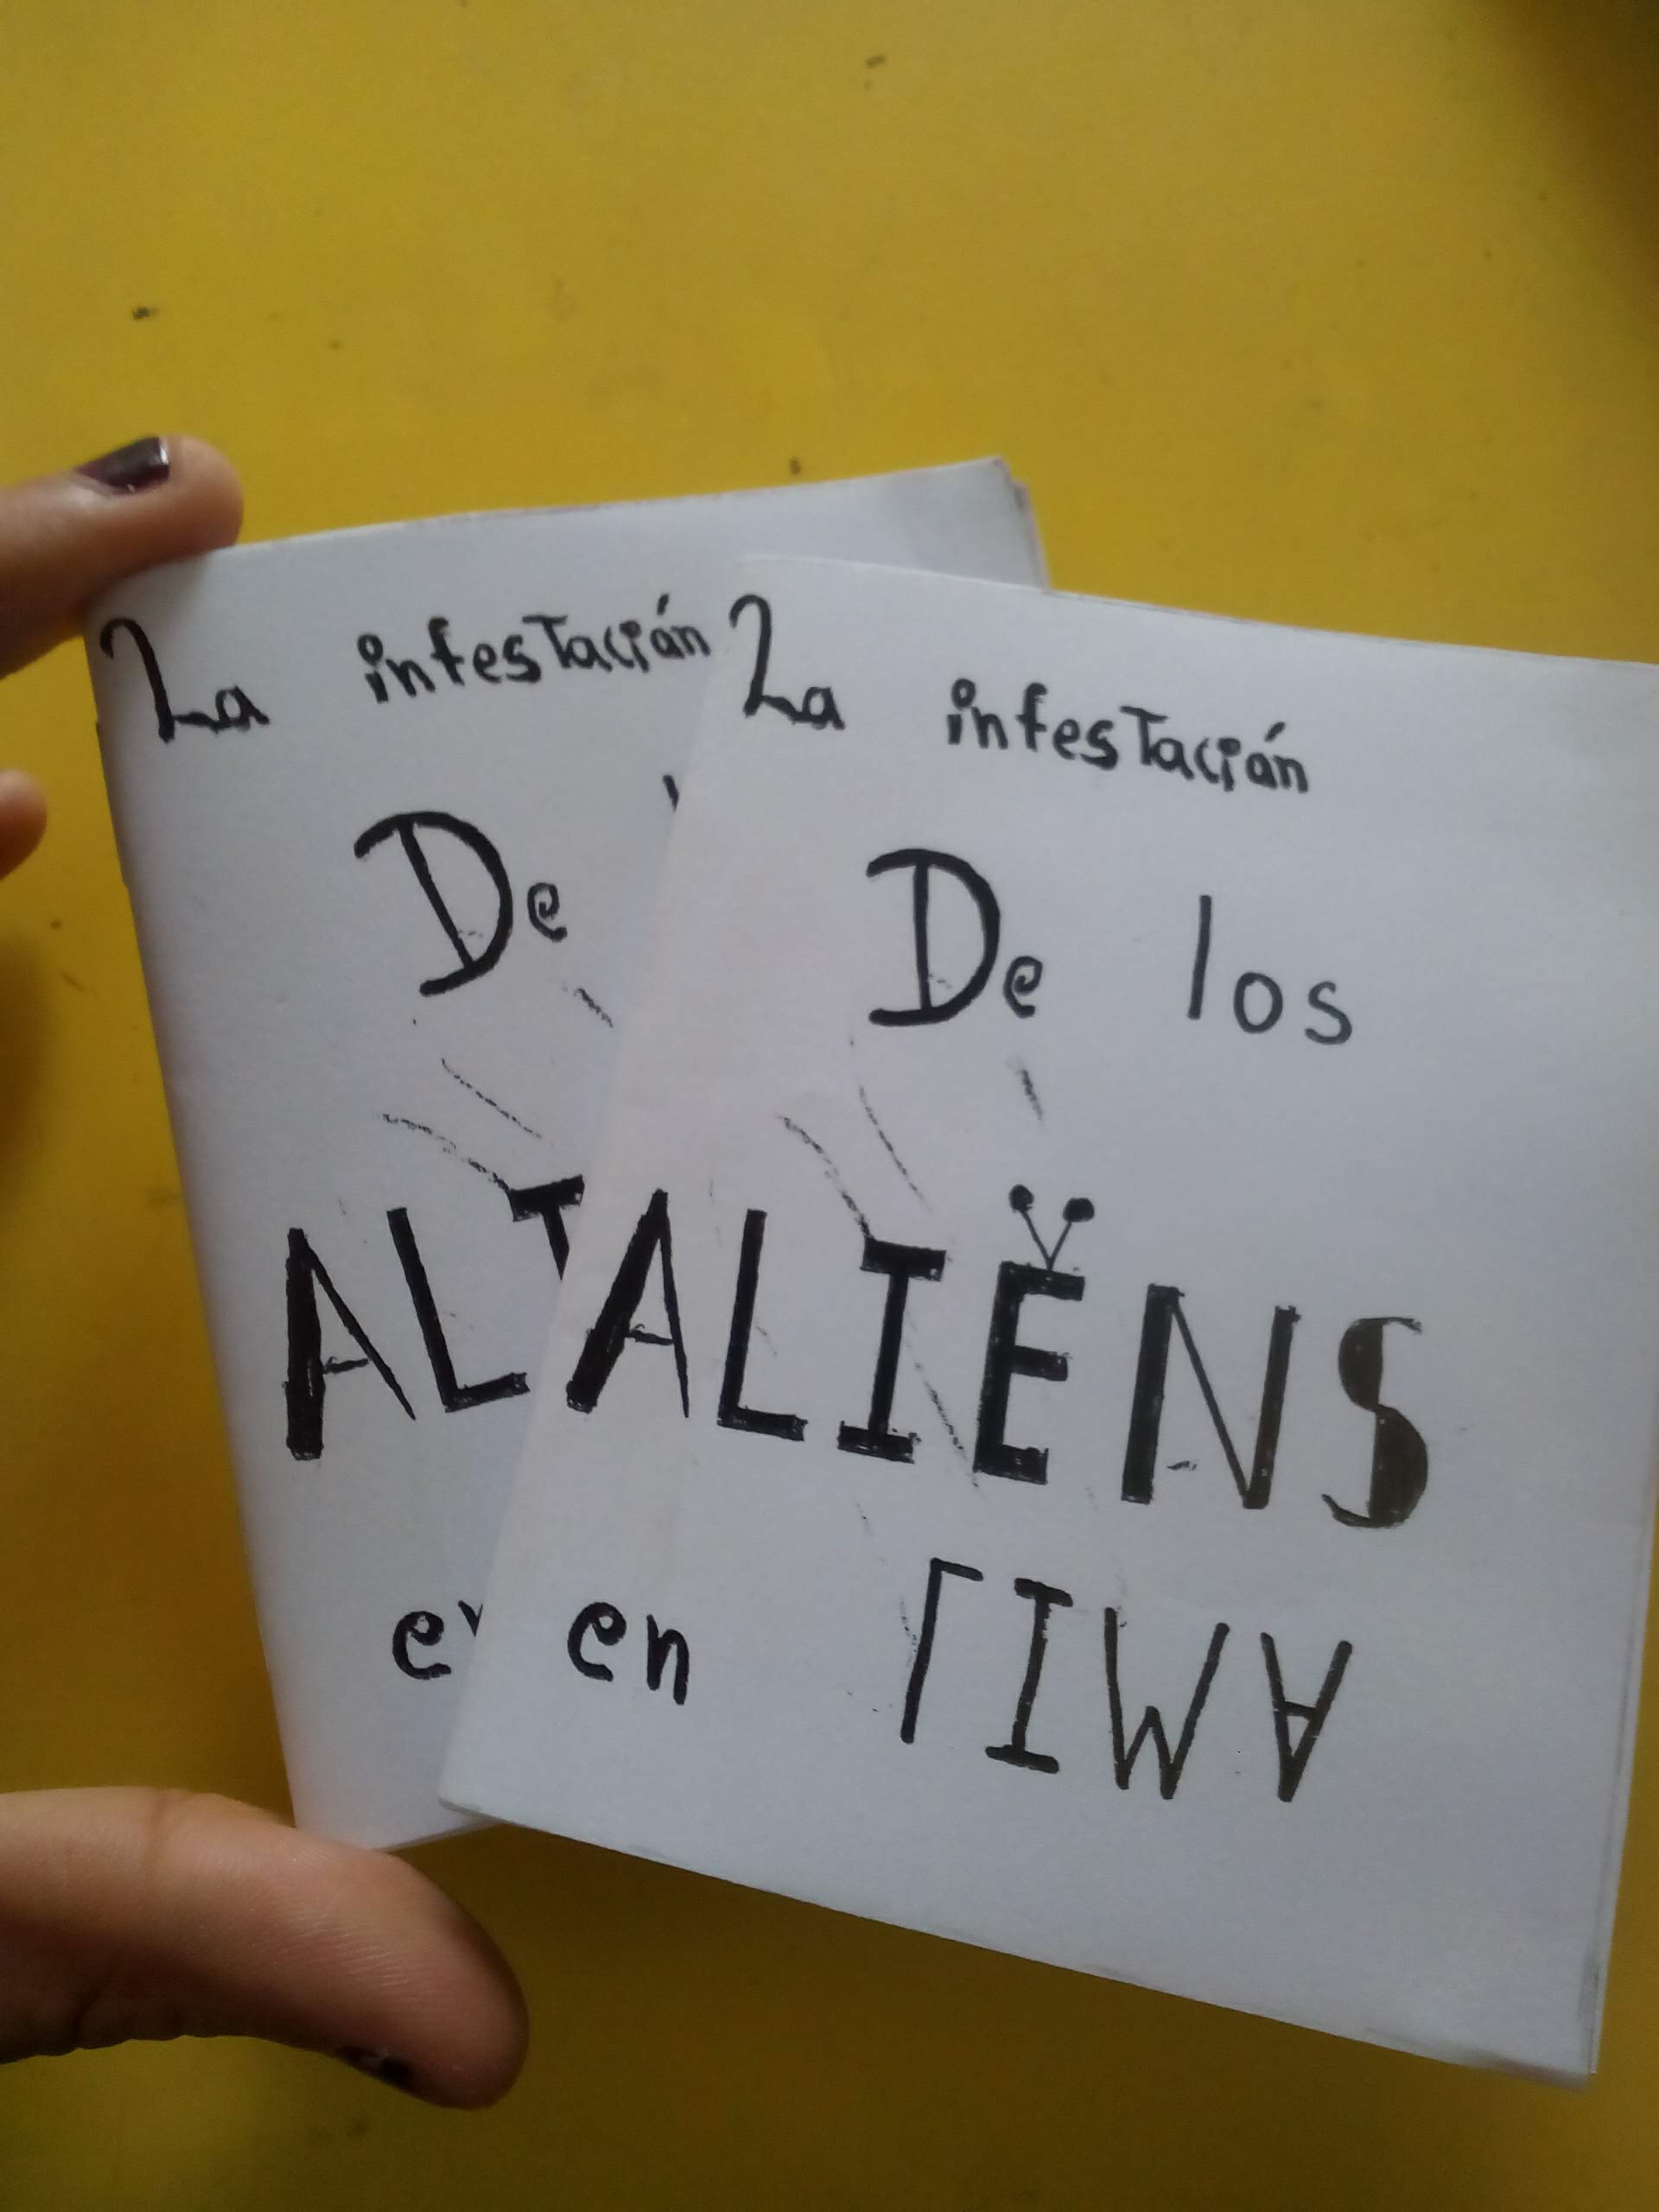 La infesTación
De
ALI
en
La infesTación
De los
ALIENS
en LIMA